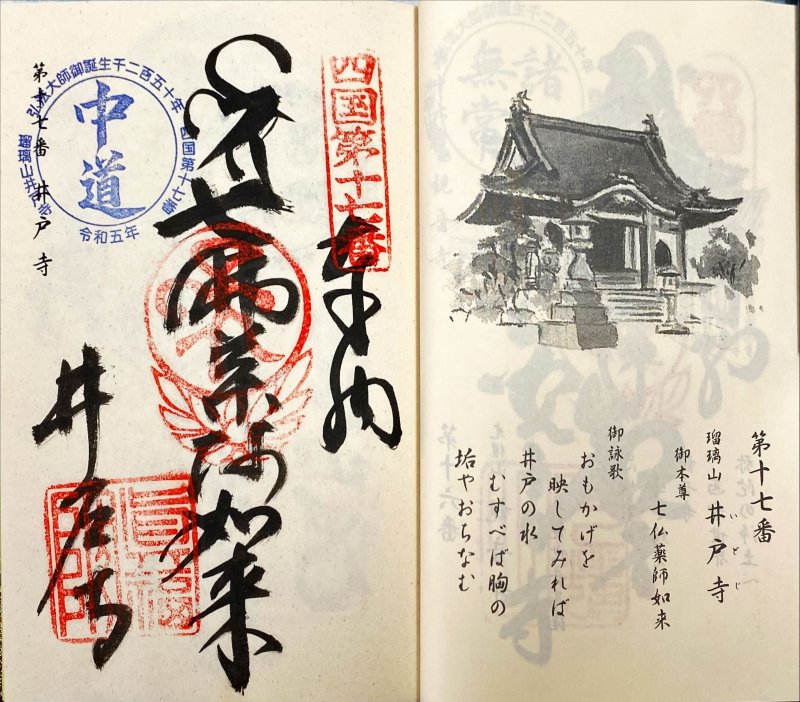 第十七番
瑠璃山 井戸寺
いどじ
御本尊
七仏薬師如来
御詠歌
おもかげを
映してみれば
井戸の水
むすべば胸の
垢やおちなむ
四国第十七番
奉納
七佛薬師如来
井戸寺
弘法大師御誕生千二百五十年
四国第十七番
瑠璃山井戸寺
中道
令和五年
第十七番 井戸寺